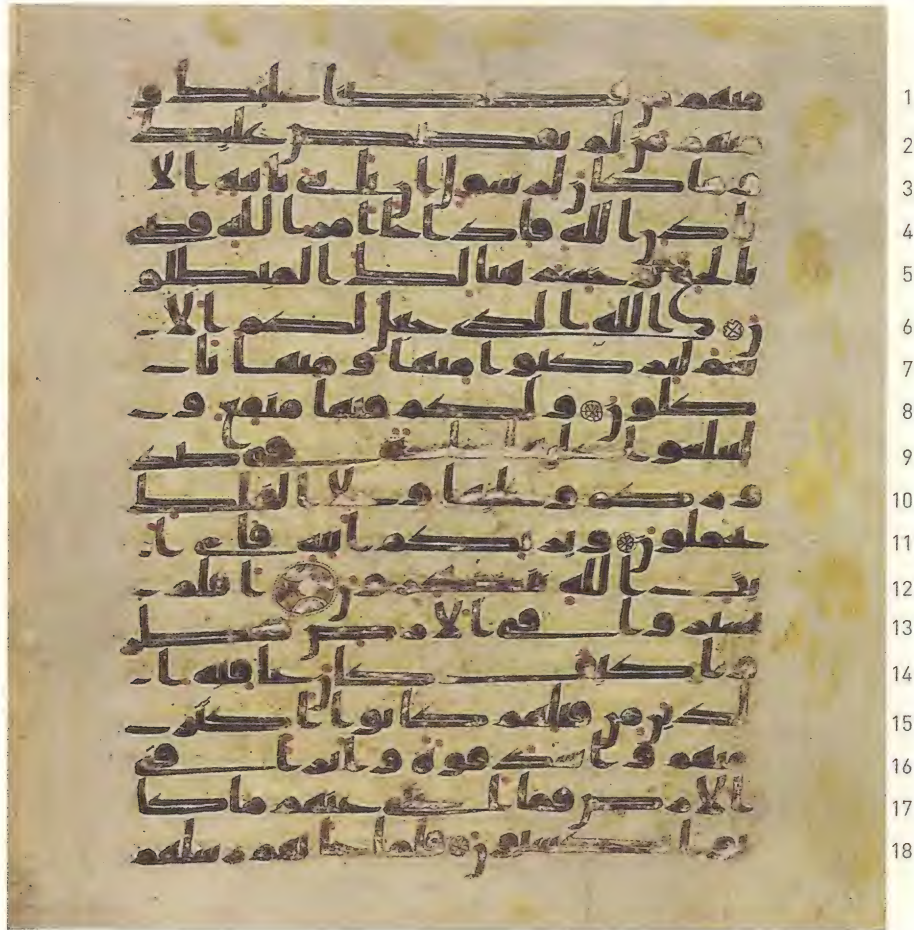 1 منهم من قصصنا عليك و
2 منهم من لم نقصص عليك
3 وما كان لرسول ان ياتى باية الا
4 باذن الله فاذا جا امر الله قضى
5 بالحق وخسر هنالك المبطلو
6 ن الله الذى جعل لكم الا
7 نعم لتركبوا منها ومنها تا
8 كلون ولكم فيها منفع و
9 لتبلغوا عليها حاجة فى صد
10 وركم وعليها وعلا الفلك
11 تحملون ويريكم ايته فاى ا
12 يت الله تنكرون افلم
13 يسيروا فى الارض فينظر
14 وا كيف كان عقبة ا
15 لذين من قبلهم كانوا اكثر
16 منهم واشد قوة واثارا فى
17 الارض فما اغنى عنهم ما كا
18 نوا يكسبون فلما جاتهم رسلهم